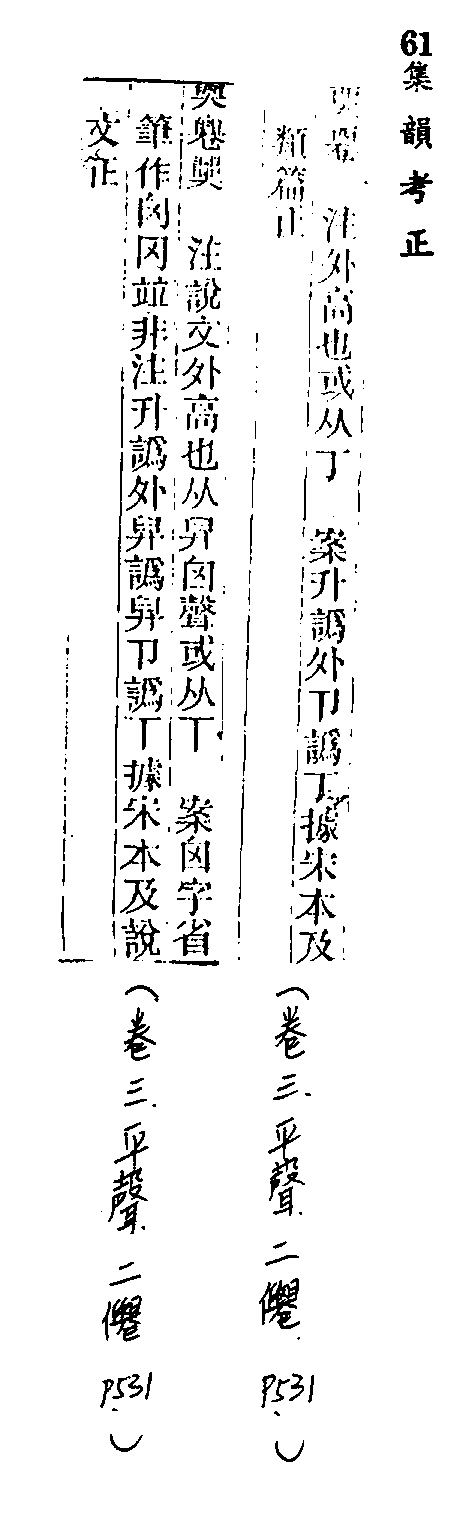 61集韻考正
注外高也或从丁　案升譌外卩譌丁據宋本及
類篇正
(卷三．平聲．二僊．P531．)
注說文外高也从舁囟聲或从丅　案囟字省
筆作囟冈竝非注升譌外舁譌卩譌丅據宋本及說
文正
(卷三．平聲．二僊 P531．)